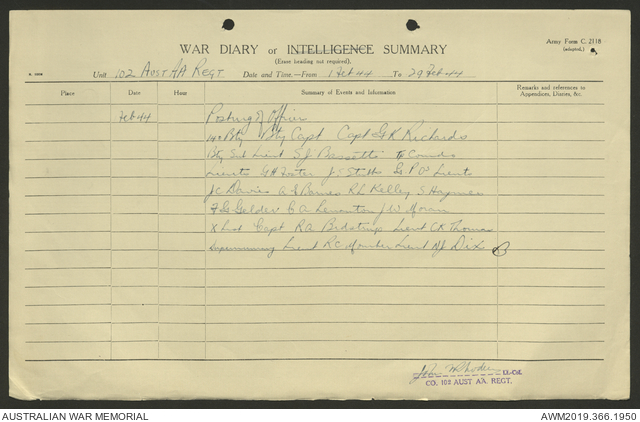 Army Form C. 2118
(adapted.)
WAR DIARY or INTELLIGENCE SUMMARY
(Erase heading not required).
Unit 102 AUST AA REGT. Date and Time.—From 1 Feb 44 To 29 Feb 44
Place Date Hour Summary of Events and Information Remarks and references to Appendices, Diaries, &c.
Feb 44 Posting of Officers
Bty Capt Capt G K Richards
Lieut S J Bassetts Tp Comds
Lieuts G H Foster J S Lieuts
J C Davies A S Barnes R L Kelley S Haymes
F G Gelder C A J W Moran
Capt R A Lieut C K Thomas
Lieut R C Lieut Dix
Lt.-Col.
CO. 102 AUST AA. REGT.
AUSTRALIAN WAR MEMORIAL AWM2019.366.1950